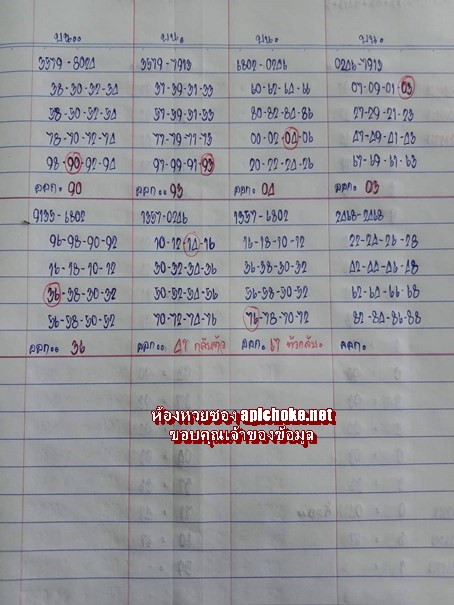 บน.. บน. บน. บน.
3579-8024 3579-7913 6802-0246 0246-7913
38-30-32-34 37-39-31-33 60-62-64-66 07-09-01-03
58-50-52-54 57-59-51-53 80-82-84-86 27-29-21-23
78-70-72-74 77-79-71-73 00-02-04-06 47-49-41-43
98-90-92-94 97-99-91-93 20-22-24-26 67-69-61-63
ออก: 90 ออก: 93 ออก: 04 ออก: 03
9135-6802 1357-0246 1357-6802 2468-2468
96-98-90-92 10-12-14-16 16-18-10-12 22-24-26-28
16-18-10-12 30-32-34-36 36-38-30-32 42-44-46-48
36-38-30-32 50-52-54-56 56-58-50-52 62-64-66-68
56-58-50-52 70-72-74-76 76-78-70-72 82-84-86-88
ออก.. 36 ออก.. 41 กลับตัว ออก. 67 ตัวกลับ. ออก.
ห้องหวยซอง apichoke.net
ขอบคุณเจ้าของข้อมูล